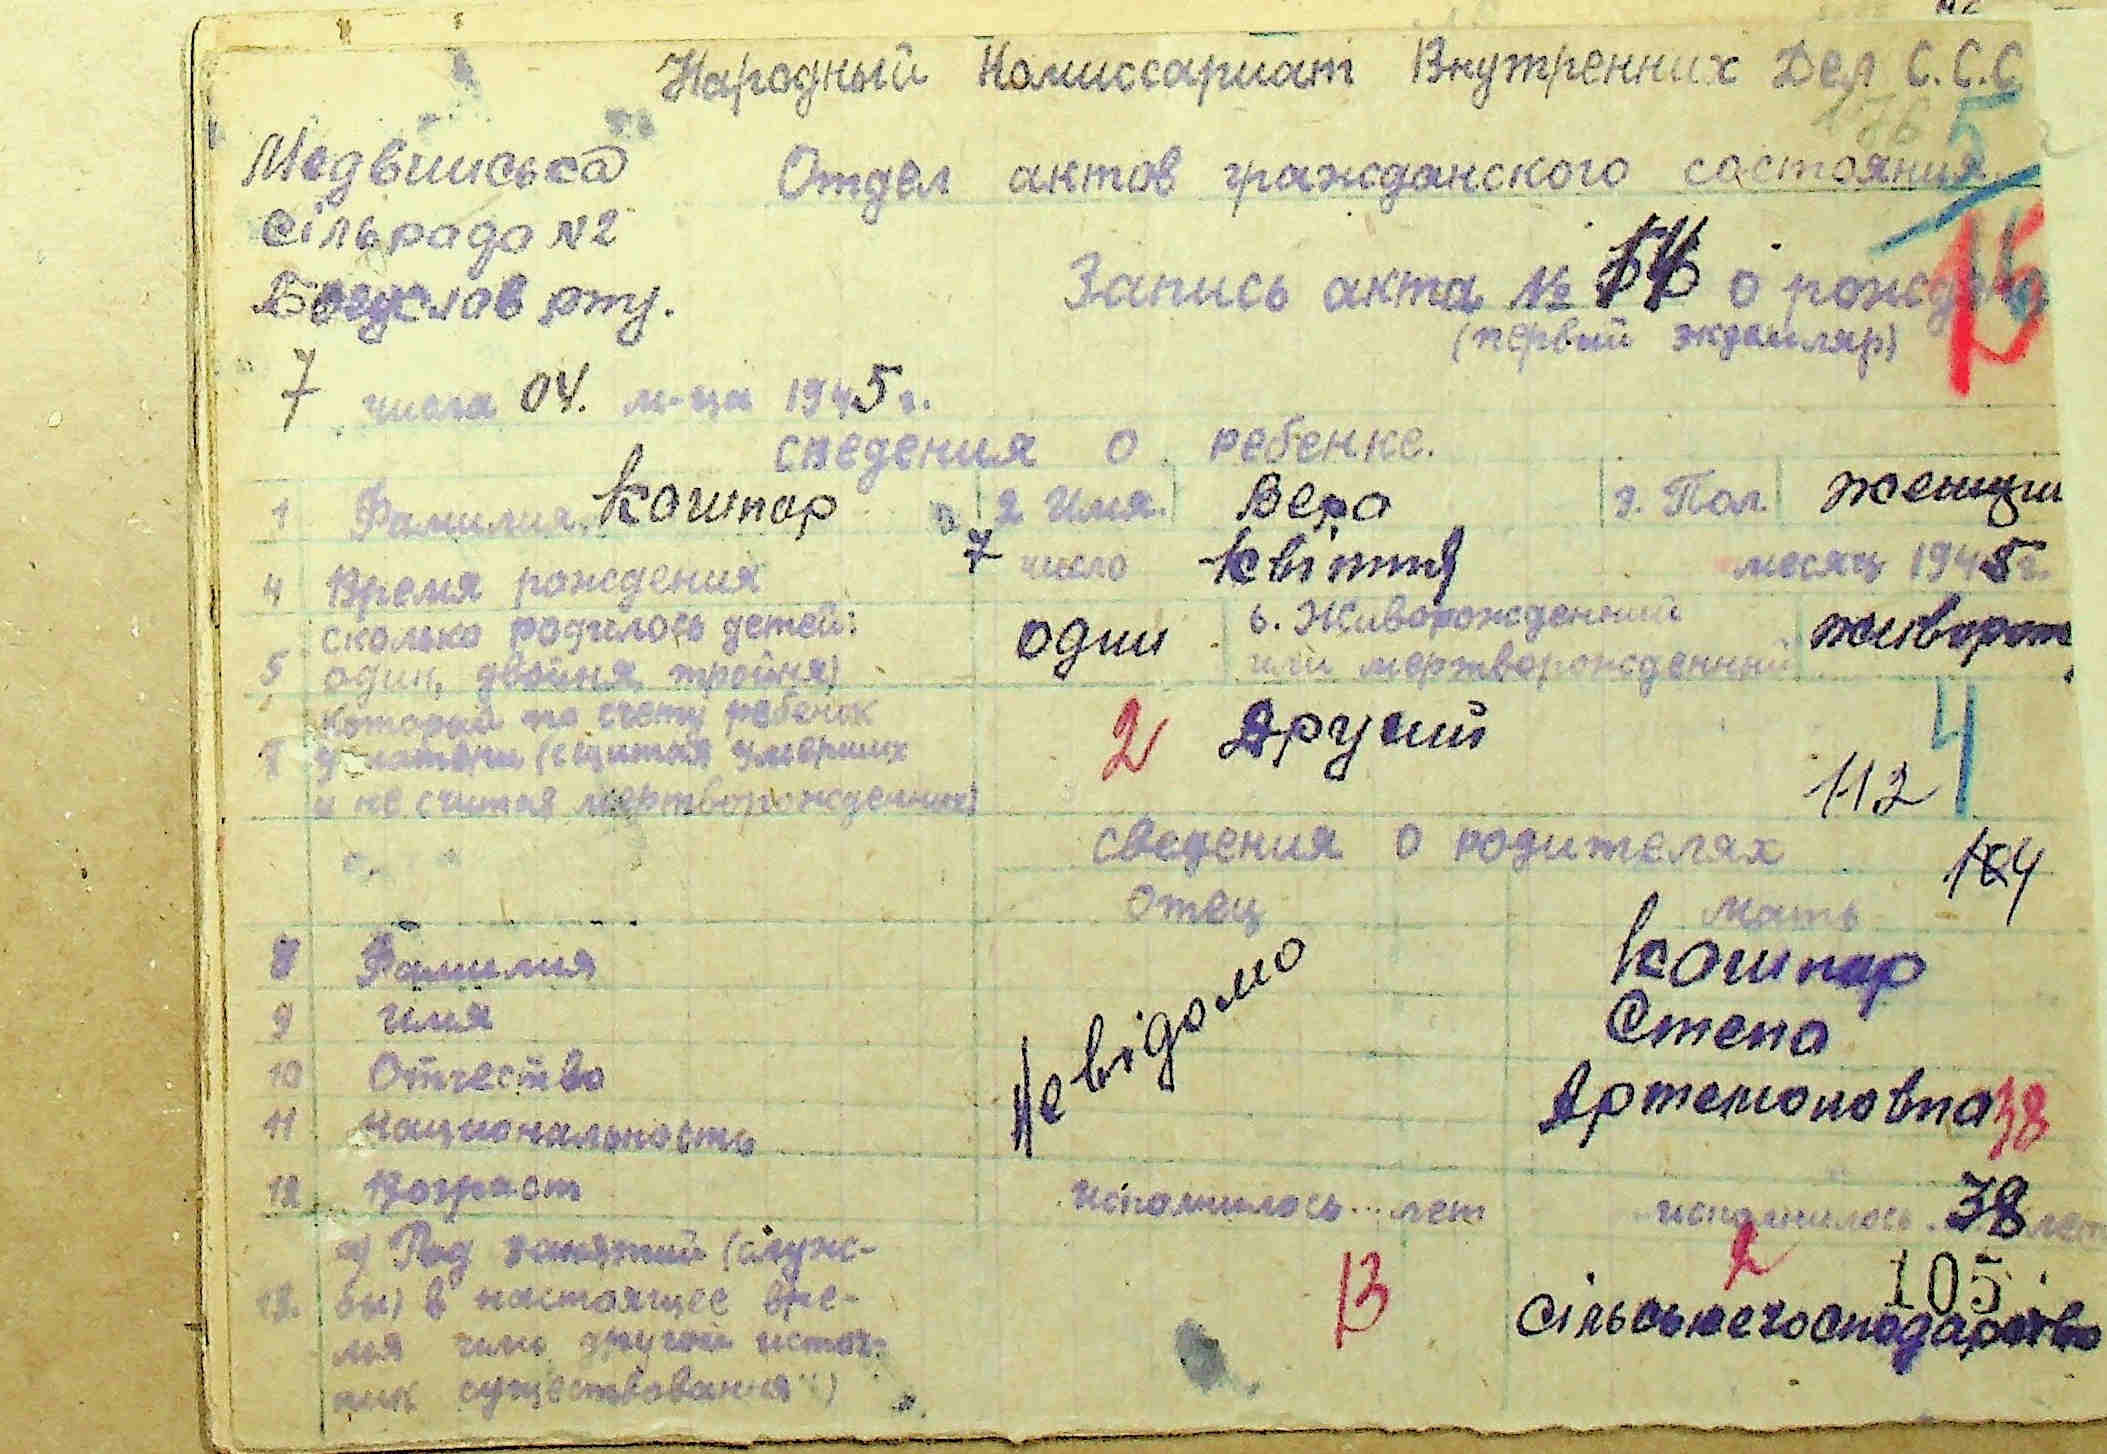 Народный Комиссариат Внутренних Дел С.С.С
176 5
Медвинська Отдел актов гражданского состояния
сільрада №2
Запись акта № о рожд 15
Богуслав рту.
(первий экземпляр)
7 числа 04. м-ца 1945 г.
сведения о ребенке.
1 Фамилия. Кошпар 2 Имя. Вера 3. Пол. женщи
4 Время рождения 7 число Квітня месяц 1945 г.
сколько родилось детей: один 6. Живорожденний живорож
5 один, двойня, тройня) или мертворожденний
который по счету ребенок 2 Другий 4
7 у матери (считая умерших
и не считая мертворожденних) 113
сведения о родителях
104
Отец мать
8 Фамилия Невідомо Кошпар
9 имя Степа
10 Отчество Артемоновна 38
11 национальность
12 Возраст исполнилось... лет исполнилось. 38 лет
а) Род занятий (служ- 2
13. бы) в настоящее вре- 13 105
мя или другой источ- сільське господарство
ник существования)